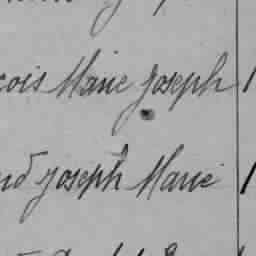 çois Marie Joseph
nd Joseph Marie